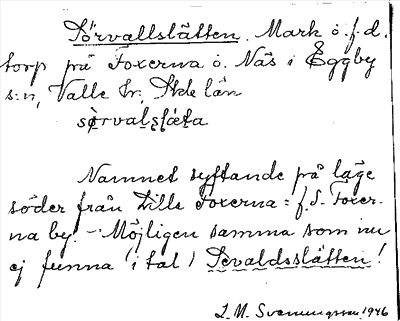 Sörvallslätten. Mark ö. f. d.
torp på Foxerna ö. Näs i Eggby
s:n, Valle hr; Skbg län
sǫ̀rvalsļǽta
Namnet syftande på läge
söder från Lilla Foxerna = f. d. Foxer-
na by. - Möjligen samma som nu
ej funna (i tal) Sevaldsslätten!
L. M. Svenungsson 1946